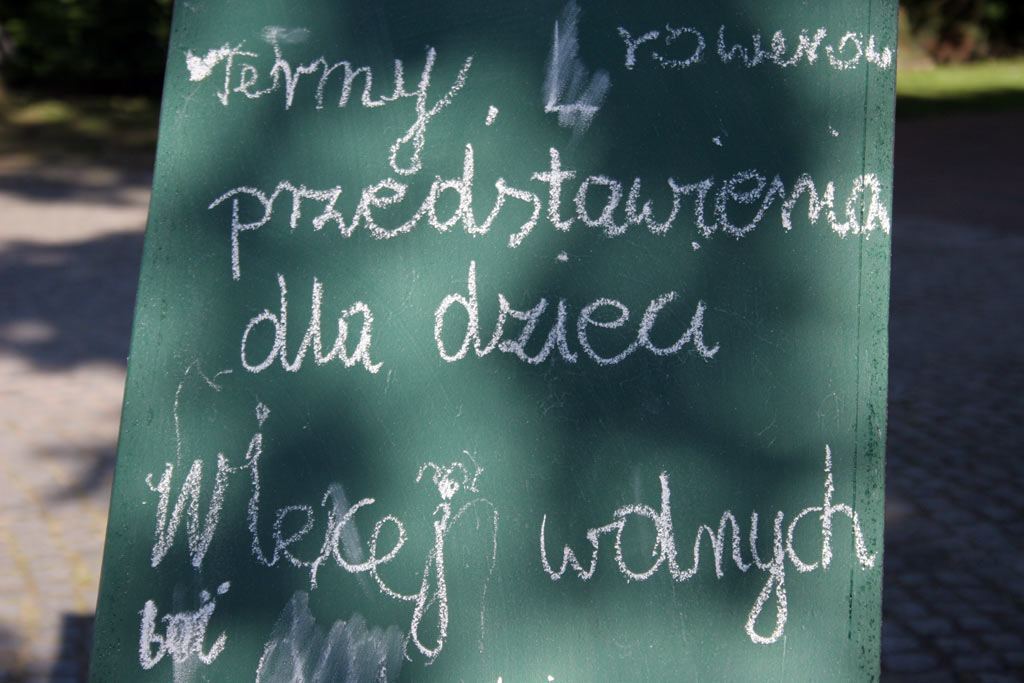 Termy, rowerów
przedstawienia
dla dzieci
Więcej wolnych